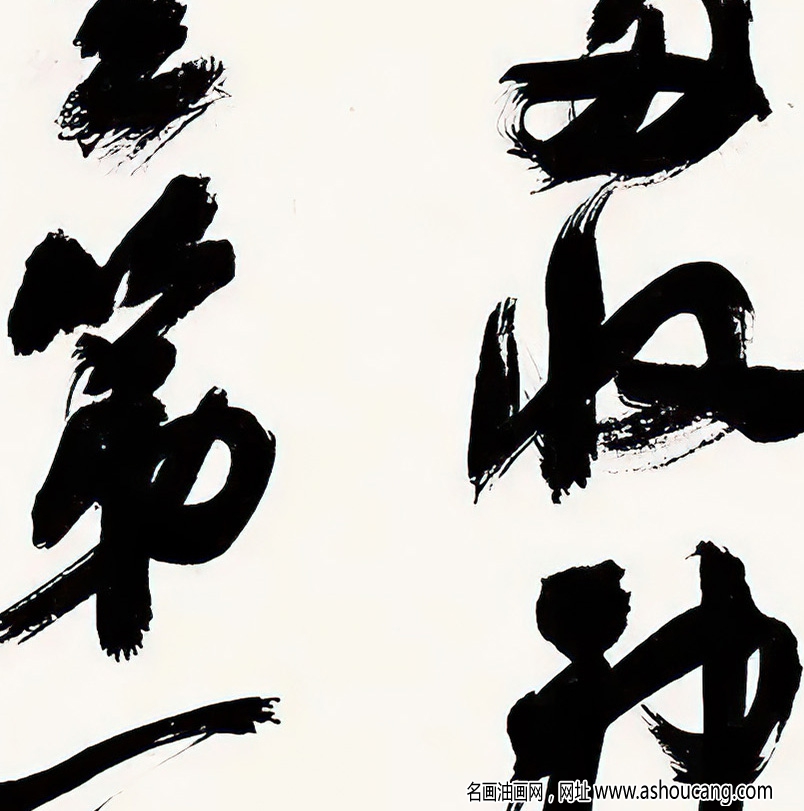 收神
第一
名画油画网，网址 www.ashoucang.com